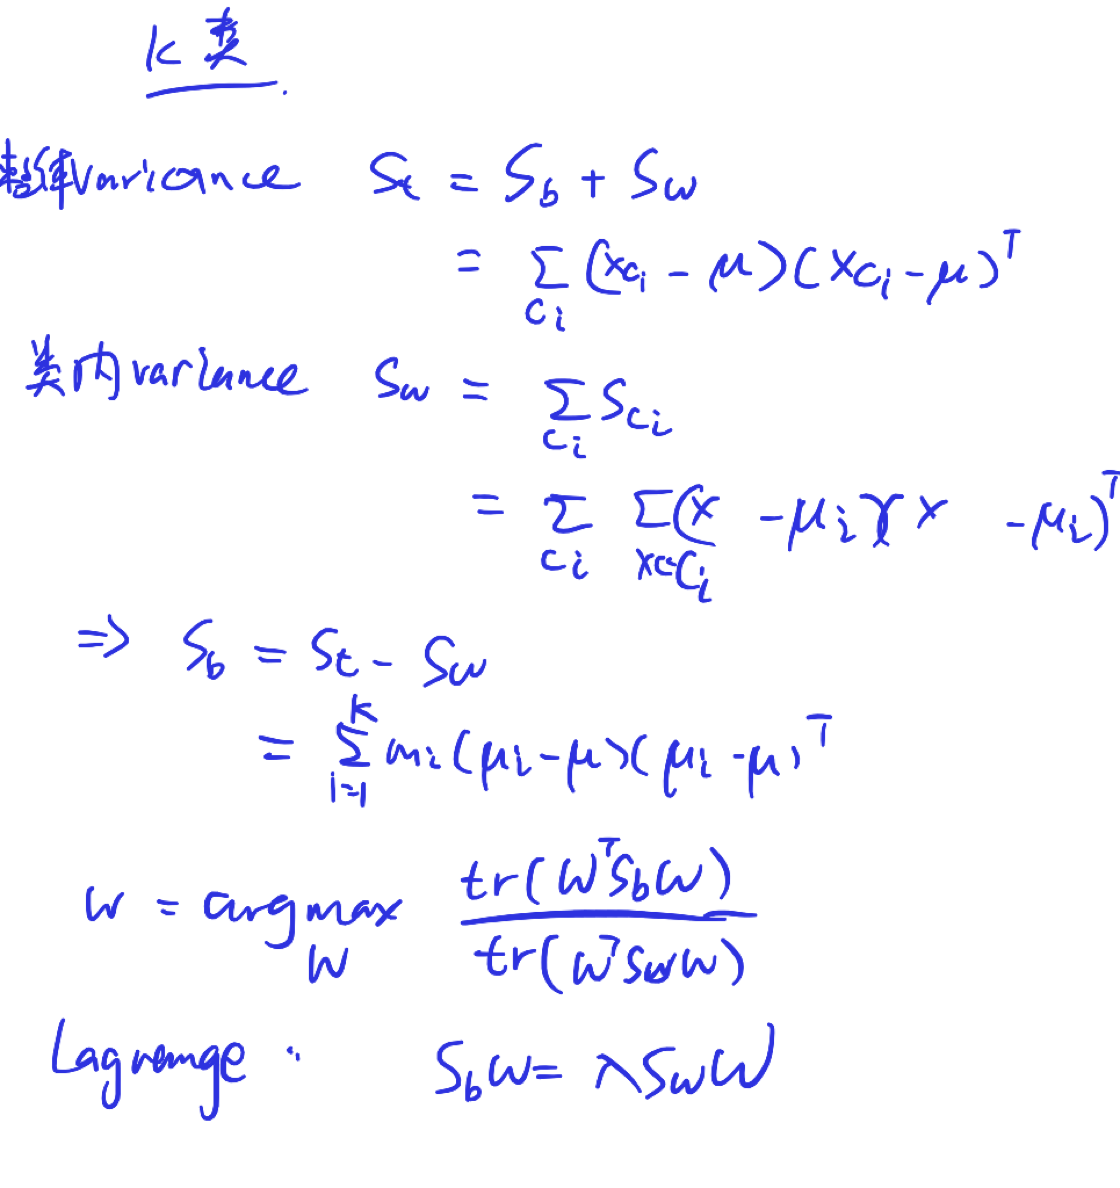 K类
整体variance S_t = S_b + S_w
= Σ_{C_i} (x_{C_i} - μ)(x_{C_i} - μ)^T
类内variance S_w = Σ_{C_i} S_{C_i}
= Σ_{C_i} Σ_{x∈C_i} (x - μ_i)(x - μ_i)^T
⇒ S_b = S_t - S_w
= Σ_{i=1}^{K} m_i (μ_i - μ)(μ_i - μ)^T
W = argmax_W tr(W^T S_b W) / tr(W^T S_w W)
Lagrange: S_b W = λ S_w W